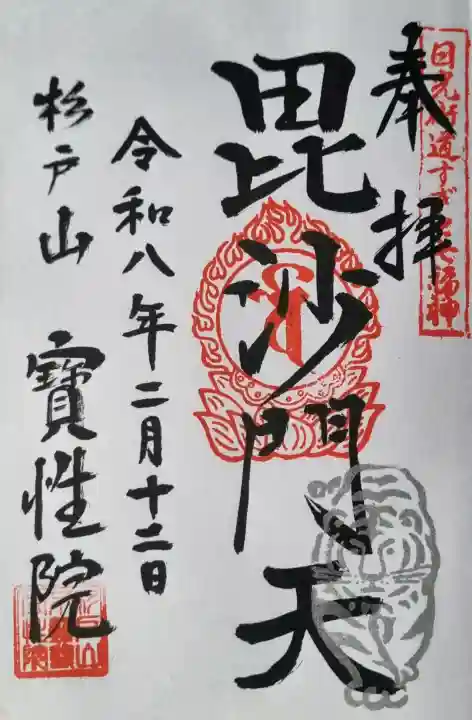 奉拝
日光街道すぎと七福神
毘沙門天
令和八年二月十二日
杉戸山 寶性院